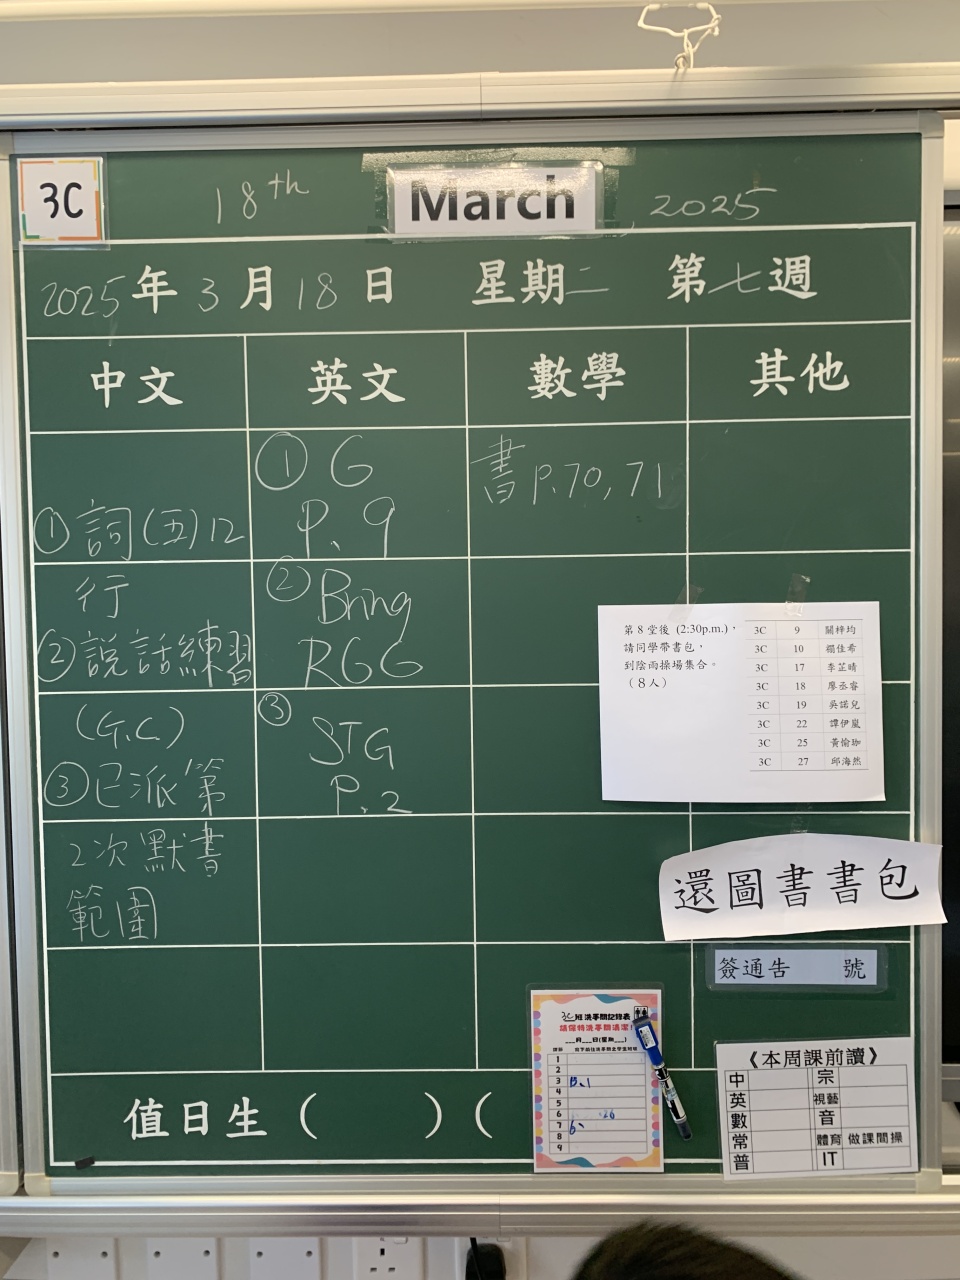 3C
18th March 2025
2025年3月18日 星期二 第七週
中文 英文 數學 其他
①詞(五)12
行
②說話練習
(G.C.)
③已派第
2次默書
範圍
① G
P.9
② Bring
RGG
③
STG
P.2
書P.70,71
第 8 堂後 (2:30p.m.)，
請同學帶書包，
到陰雨操場集合。
（8人）
3C 9 關梓均
3C 10 禤佳希
3C 17 李芷晴
3C 18 廖丞睿
3C 19 吳諾兒
3C 22 譚伊嵐
3C 25 黃愉珈
3C 27 邱海然
還圖書書包
簽通告 號
3C班洗手間記錄表
請保持洗手間清潔！
___月___日(星期___)
1
2
3 B、1
4
5
6 26
7 6、
8
9
《本周課前讀》
中 宗
英 視藝
數 音
常 體育 做課間操
普 IT
值日生（ ）（